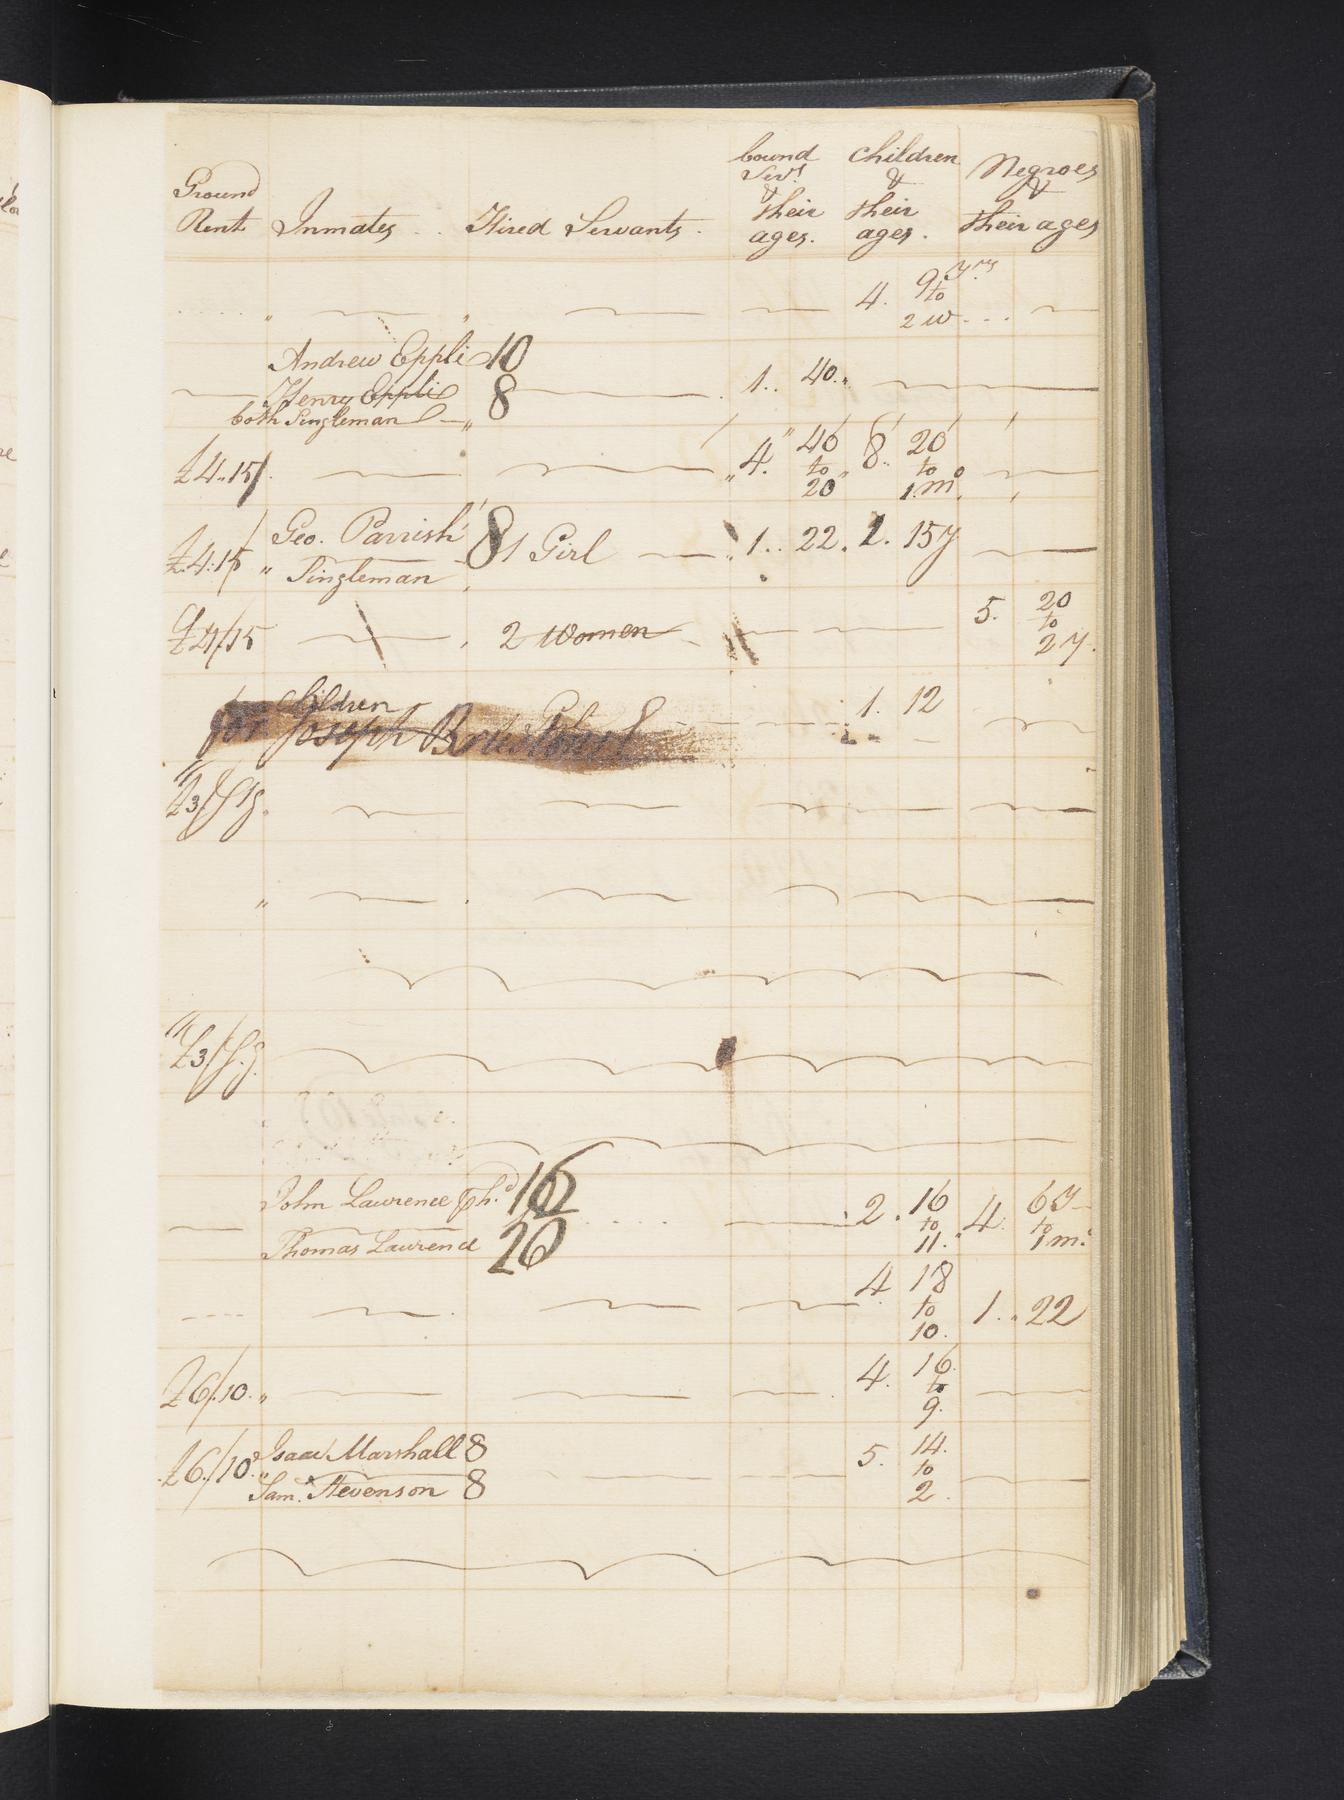 Ground Rent Inmates . . Hired Servants . bound Servts & their ages. Children & their ages . Negroes & their ages
4. 9 yrs to 2 w
Andrew Eppli 10
Henry Eppli 8 1.. 40..
both Singleman
£4..15/. 4. 40 to 20 8.. 20 to 1 mo
£4:15 Geo. Parrish 8 1 Girl 1.. 22. 1. 15y
Singleman
£4/15 2 Women 5. 20 to 2 y.
Children 1. 12
for Joseph
£3/
£3/
John Lawrence 16 2. 16 to 11. 4. 6 y to 1 m.
Thomas Lawrence 20
4 18 to 10. 1.. 22
£6/.10. 4. 16. to 9.
£6./10 Isaac Marshall 8 5. 14. to 2.
Saml. Stevenson 8